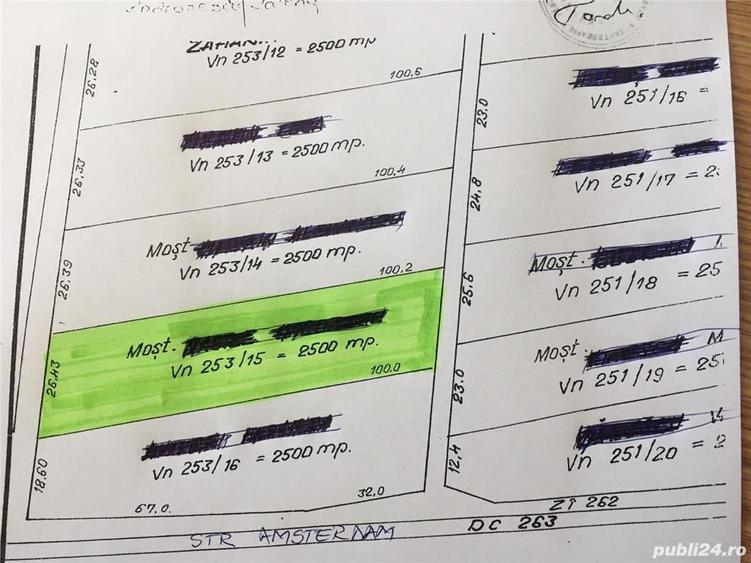 ZAHAN...
Vn 253/12 = 2500 mp
26.28
100.6
Vn 253/13 = 2500 mp.
26.33
100.4
Moșt.
Vn 253/14 = 2500 mp.
26.39
100.2
Moșt.
Vn 253/15 = 2500 mp.
26.43
100.0
Vn 253/16 = 2500 mp.
18.60
67.0.
32.0
Vn 251/16 =
23.0
Vn 251/17 = 2
24.8
Moșt.
Vn 251/18 = 25
25.6
Moșt. M
Vn 251/19 = 25
23.0
Vn 251/20 = 2
12.4
ZT 262
DC 263
STR AMSTERNAM
publi24.ro